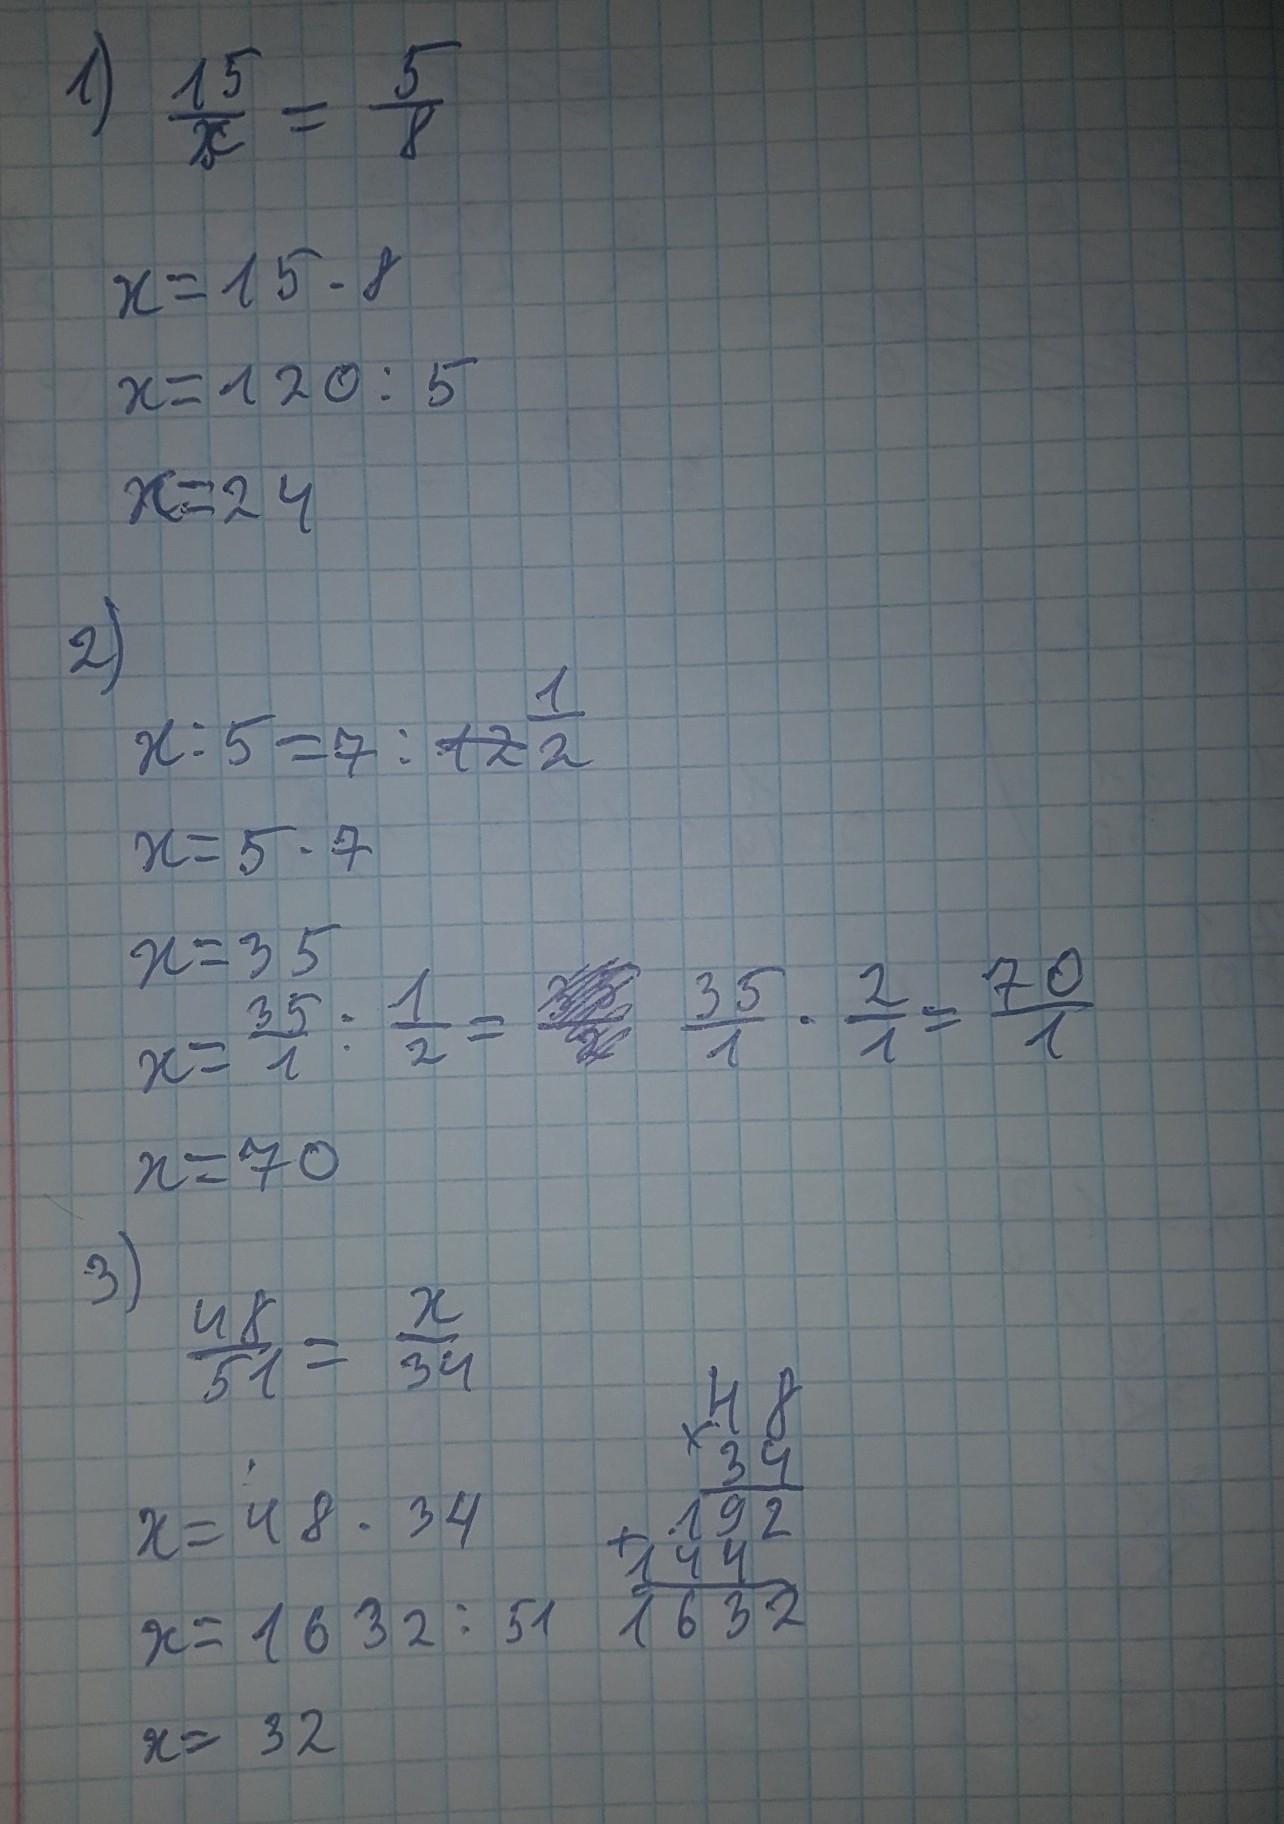 1) 15/x = 5/8
x=15·8
x=120:5
x=24
2)
x:5=7:1/2
x=5·7
x=35
x=35/1:1/2= 35/1·2/1=70/1
x=70
3)
48/51=x/34
x=48·34
x=1632:51
x=32
48
×34
192
+144
1632